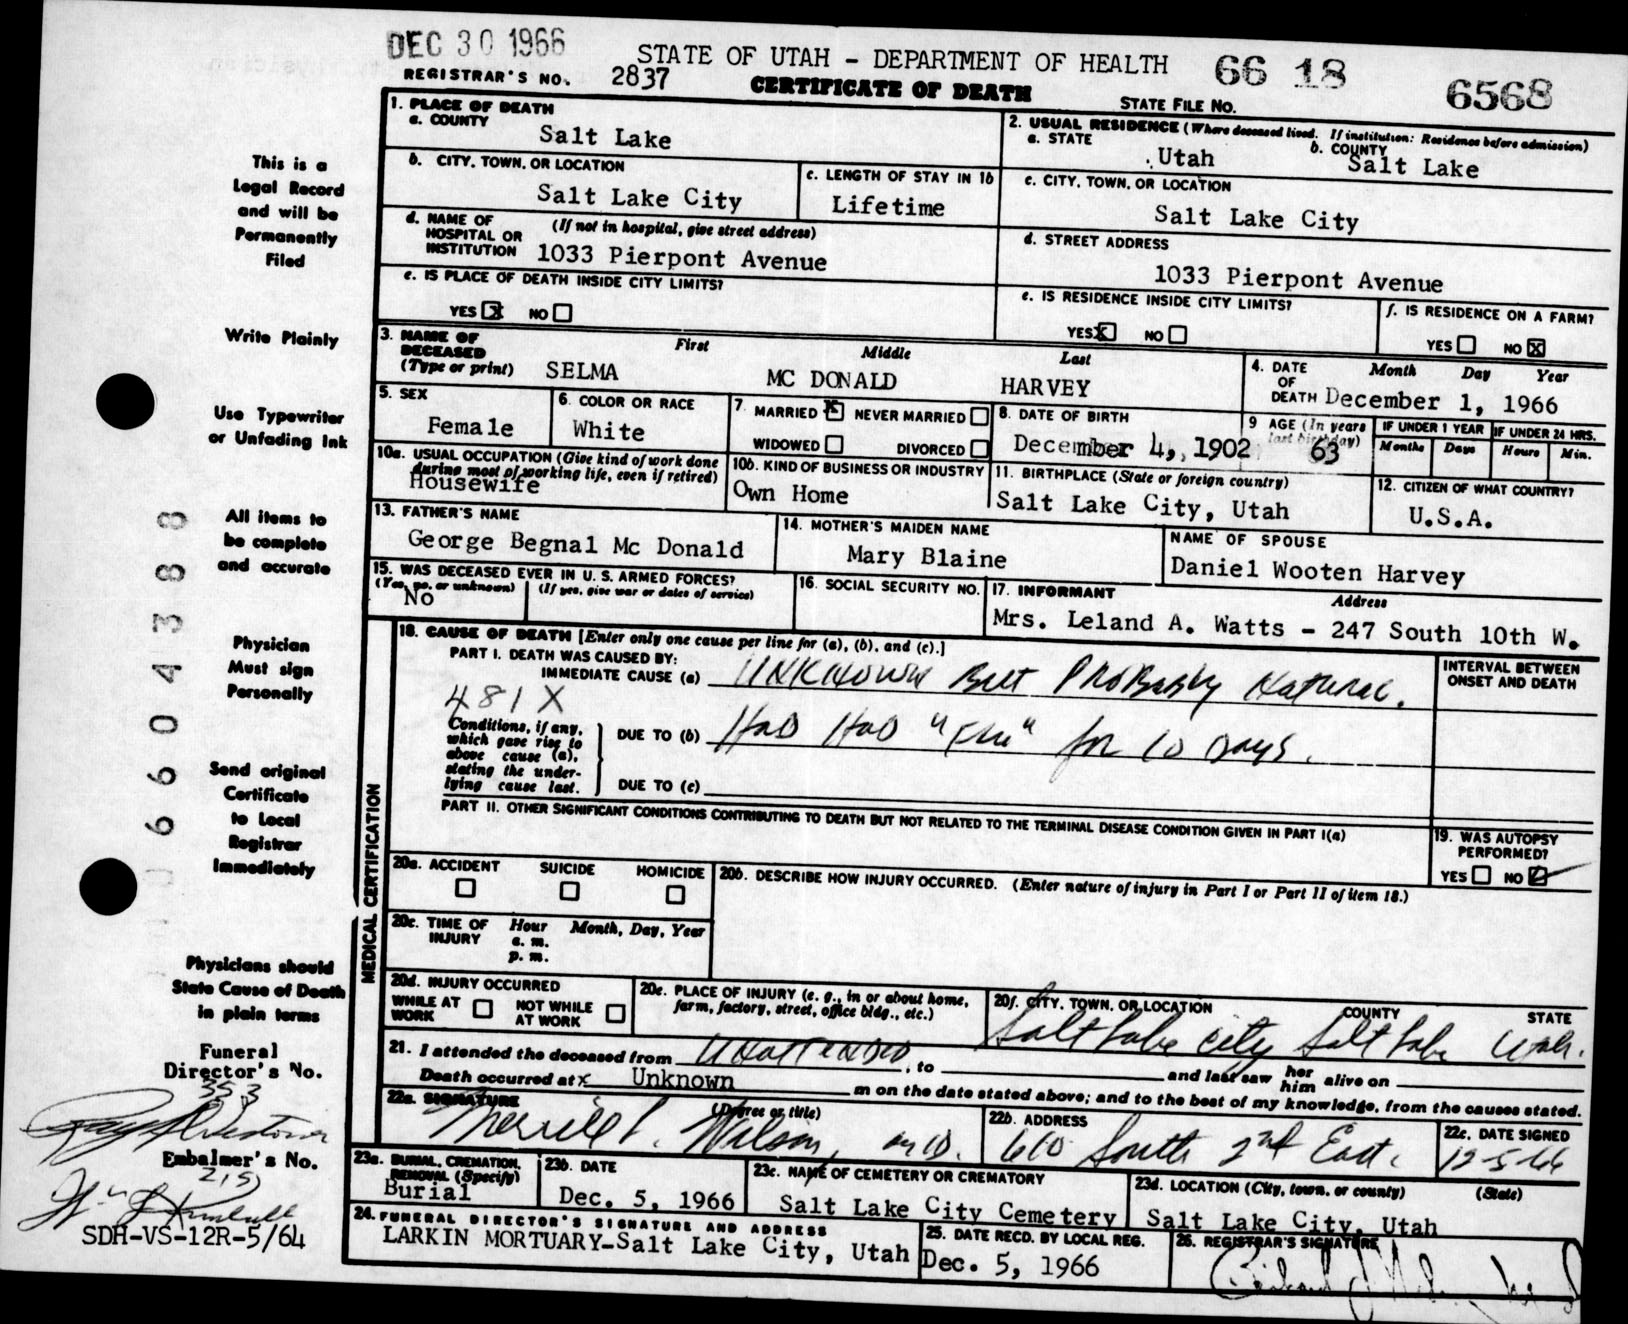 DEC 30 1966
STATE OF UTAH - DEPARTMENT OF HEALTH 66 18 6568
REGISTRAR'S NO. 2837
CERTIFICATE OF DEATH
STATE FILE NO.
This is a
Legal Record
and will be
Permanently
Filed
Write Plainly
Use Typewriter
or Unfading Ink
All items to
be complete
and accurate
Physician
Must sign
Personally
Send original
Certificate
to Local
Registrar
Immediately
Physicians should
State Cause of Death
in plain terms
Funeral
Director's No.
353
Embalmer's No.
215
SDH-VS-12R-5/64
6604388
1. PLACE OF DEATH
a. COUNTY
Salt Lake
b. CITY, TOWN, OR LOCATION
Salt Lake City
c. LENGTH OF STAY IN 1b
Lifetime
d. NAME OF HOSPITAL OR INSTITUTION
(If not in hospital, give street address)
1033 Pierpont Avenue
e. IS PLACE OF DEATH INSIDE CITY LIMITS?
YES X NO
2. USUAL RESIDENCE (Where deceased lived. If institution: Residence before admission)
a. STATE
Utah
b. COUNTY
Salt Lake
c. CITY, TOWN, OR LOCATION
Salt Lake City
d. STREET ADDRESS
1033 Pierpont Avenue
e. IS RESIDENCE INSIDE CITY LIMITS?
YES X NO
f. IS RESIDENCE ON A FARM?
YES NO X
3. NAME OF DECEASED (Type or print)
First Middle Last
SELMA MC DONALD HARVEY
4. DATE OF DEATH
Month Day Year
December 1, 1966
5. SEX
Female
6. COLOR OR RACE
White
7. MARRIED X NEVER MARRIED
WIDOWED DIVORCED
8. DATE OF BIRTH
December 4, 1902
9 AGE (In years last birthday)
63
IF UNDER 1 YEAR
Months Days
IF UNDER 24 HRS.
Hours Min.
10a. USUAL OCCUPATION (Give kind of work done during most of working life, even if retired)
Housewife
10b. KIND OF BUSINESS OR INDUSTRY
Own Home
11. BIRTHPLACE (State or foreign country)
Salt Lake City, Utah
12. CITIZEN OF WHAT COUNTRY?
U.S.A.
13. FATHER'S NAME
George Begnal Mc Donald
14. MOTHER'S MAIDEN NAME
Mary Blaine
NAME OF SPOUSE
Daniel Wooten Harvey
15. WAS DECEASED EVER IN U. S. ARMED FORCES?
(Yes, no, or unknown) (If yes, give war or dates of service)
No
16. SOCIAL SECURITY NO.
17. INFORMANT Address
Mrs. Leland A. Watts - 247 South 10th W.
MEDICAL CERTIFICATION
18. CAUSE OF DEATH [Enter only one cause per line for (a), (b), and (c).]
PART I. DEATH WAS CAUSED BY:
IMMEDIATE CAUSE (a) Unknown But Probably Natural.
481X
Conditions, if any, which gave rise to above cause (a), stating the underlying cause last.
DUE TO (b) Had Had "Flu" for 10 days.
DUE TO (c)
INTERVAL BETWEEN ONSET AND DEATH
PART II. OTHER SIGNIFICANT CONDITIONS CONTRIBUTING TO DEATH BUT NOT RELATED TO THE TERMINAL DISEASE CONDITION GIVEN IN PART I(a)
19. WAS AUTOPSY PERFORMED?
YES NO
20a. ACCIDENT SUICIDE HOMICIDE
20b. DESCRIBE HOW INJURY OCCURRED. (Enter nature of injury in Part I or Part II of item 18.)
20c. TIME OF INJURY
Hour Month, Day, Year
a. m.
p. m.
20d. INJURY OCCURRED
WHILE AT WORK NOT WHILE AT WORK
20e. PLACE OF INJURY (e. g., in or about home, farm, factory, street, office bldg., etc.)
20f. CITY, TOWN, OR LOCATION COUNTY STATE
Salt Lake City Salt Lake Utah.
21. I attended the deceased from Unattended, to and last saw her him alive on
Death occurred at x Unknown m on the date stated above; and to the best of my knowledge, from the causes stated.
22a. SIGNATURE (Degree or title)
Merrill L. Wilson, M.D.
22b. ADDRESS
610 South 2nd East.
22c. DATE SIGNED
12-5-66
23a. BURIAL, CREMATION, REMOVAL (Specify)
Burial
23b. DATE
Dec. 5, 1966
23c. NAME OF CEMETERY OR CREMATORY
Salt Lake City Cemetery
23d. LOCATION (City, town, or county) (State)
Salt Lake City, Utah
24. FUNERAL DIRECTOR'S SIGNATURE AND ADDRESS
LARKIN MORTUARY-Salt Lake City, Utah
25. DATE RECD. BY LOCAL REG.
Dec. 5, 1966
26. REGISTRAR'S SIGNATURE